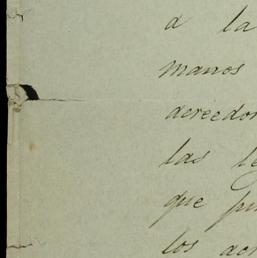 a la
manos
acreedor
las le
que pu
los acr